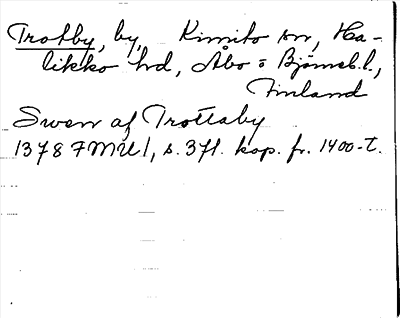 Trotby, by, Kimito sn, Ha-
likko hd, Åbo o Björneb. l.,
Finland
Swen af Trottaby
1378 FMU 1, s. 371. kop. fr. 1400-t.